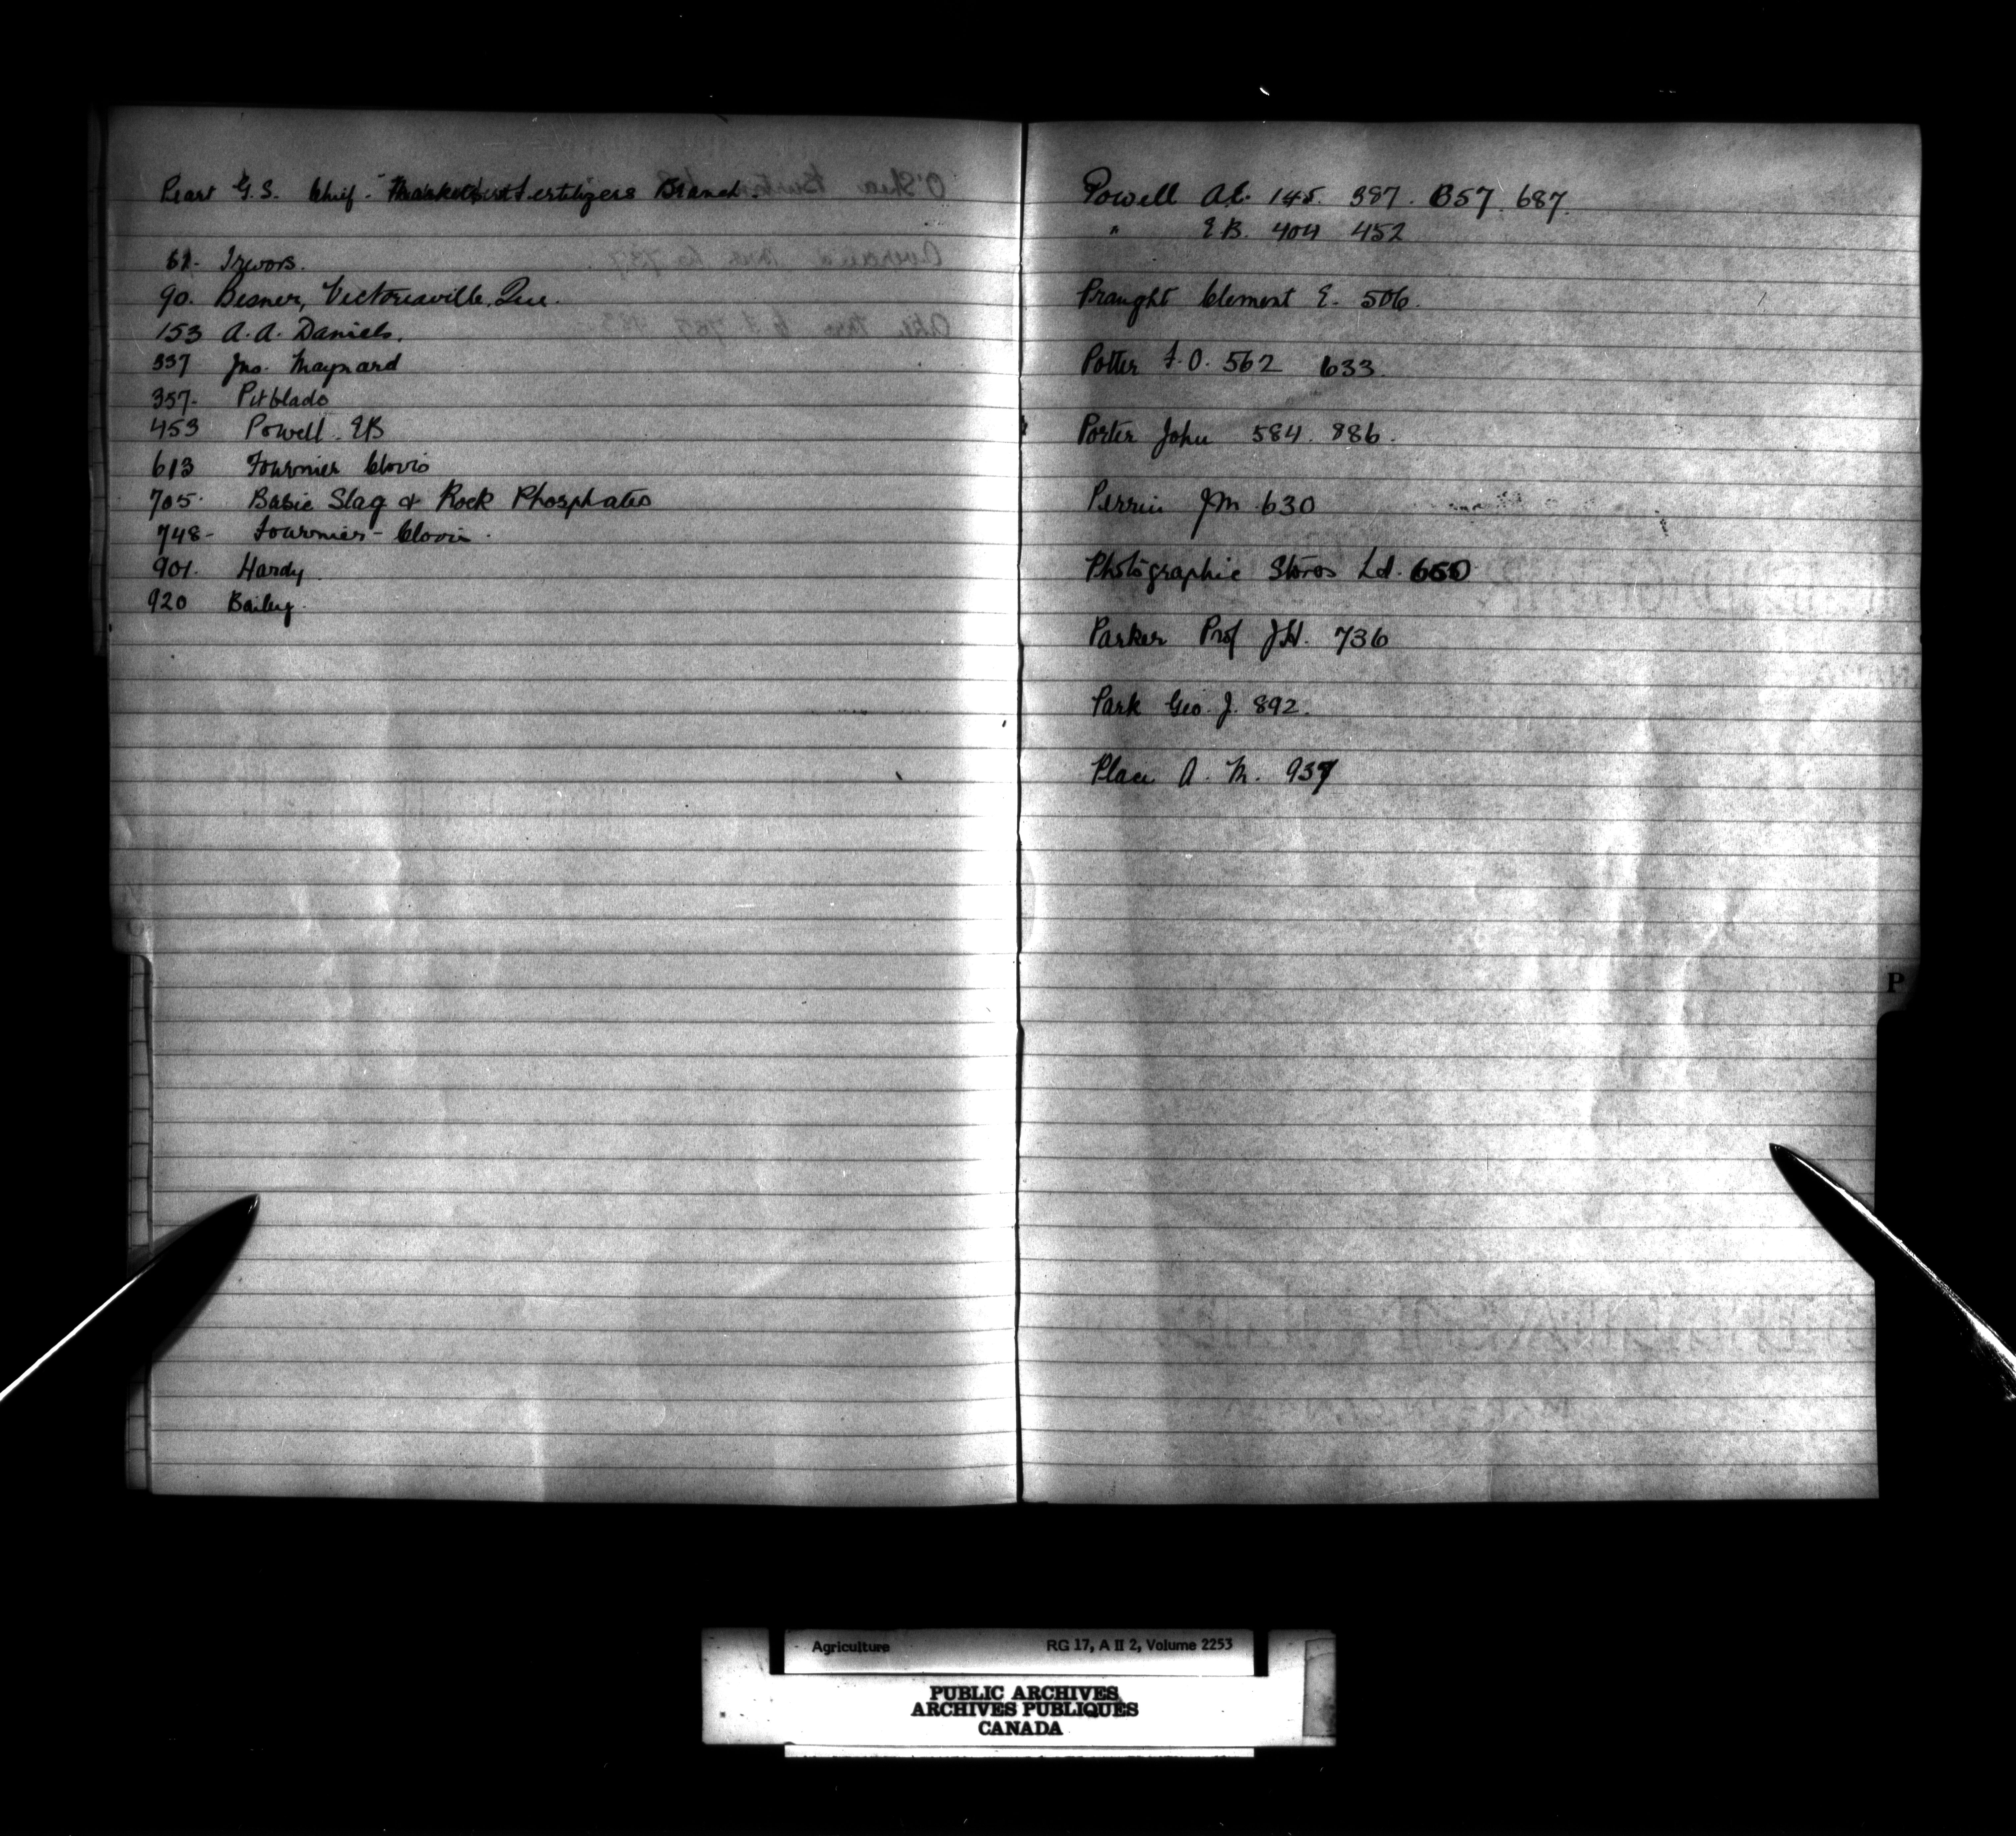 Peart G.S. Chief - Fertilizers Branch.
61. Trevors.
90. Besner, Victoriaville, Que.
153 A.A. Daniels.
337 Jno. Maynard
357- Pitblado
453 Powell. EB
613 Fournier Clovis
705. Basic Slag & Rock Phosphates
748- Fournier - Clovis.
901. Hardy.
920 Bailey.
Powell A.C. 145. 387. 657. 687.
" E.B. 404 452
Praught Clement E. 506.
Potter F.O. 562 633.
Porter John 584. 886.
Perrin JM 630
Photographic Stores Ld. 660
Parker Prof JH. 736
Park Geo. J. 892.
Place A. M. 937
P
Agriculture RG 17, A II 2, Volume 2253
PUBLIC ARCHIVES
ARCHIVES PUBLIQUES
CANADA